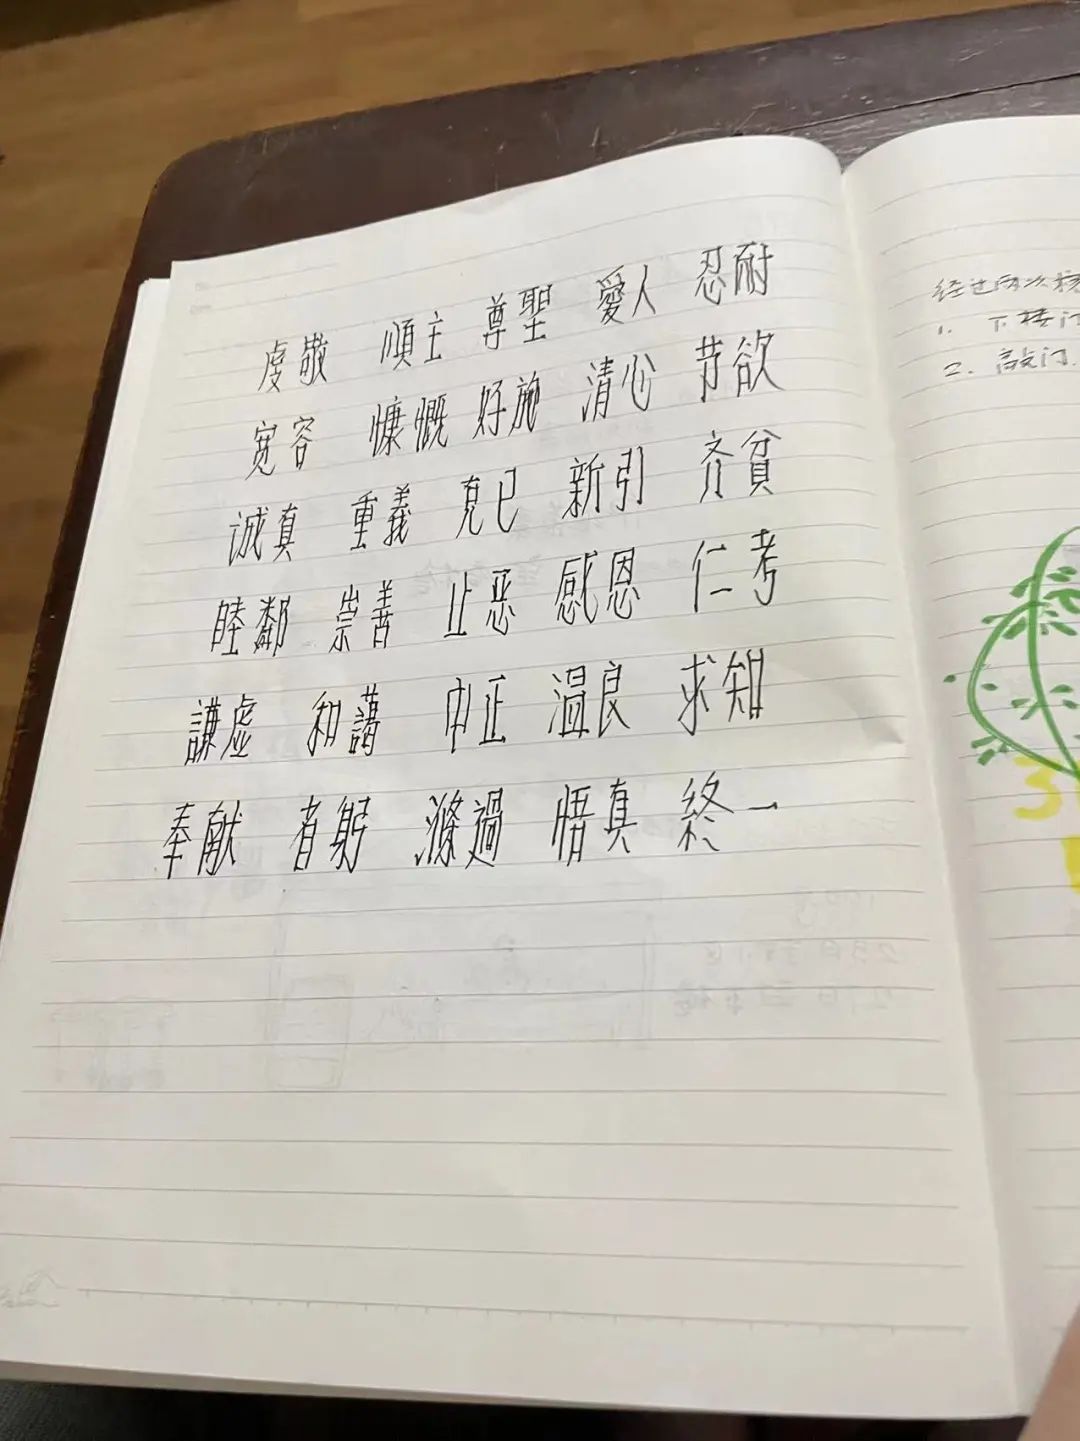 虔敬 順主 尊聖 愛人 忍耐
宽容 慷慨 好施 清心 节欲
诚真 重義 克己 新引 齐貧
睦鄰 崇善 止恶 感恩 仁考
謙虚 和藹 中正 温良 求知
奉献 者躬 滌過 悟真 終一
经过两次核
1. 下楼门
2. 敲门